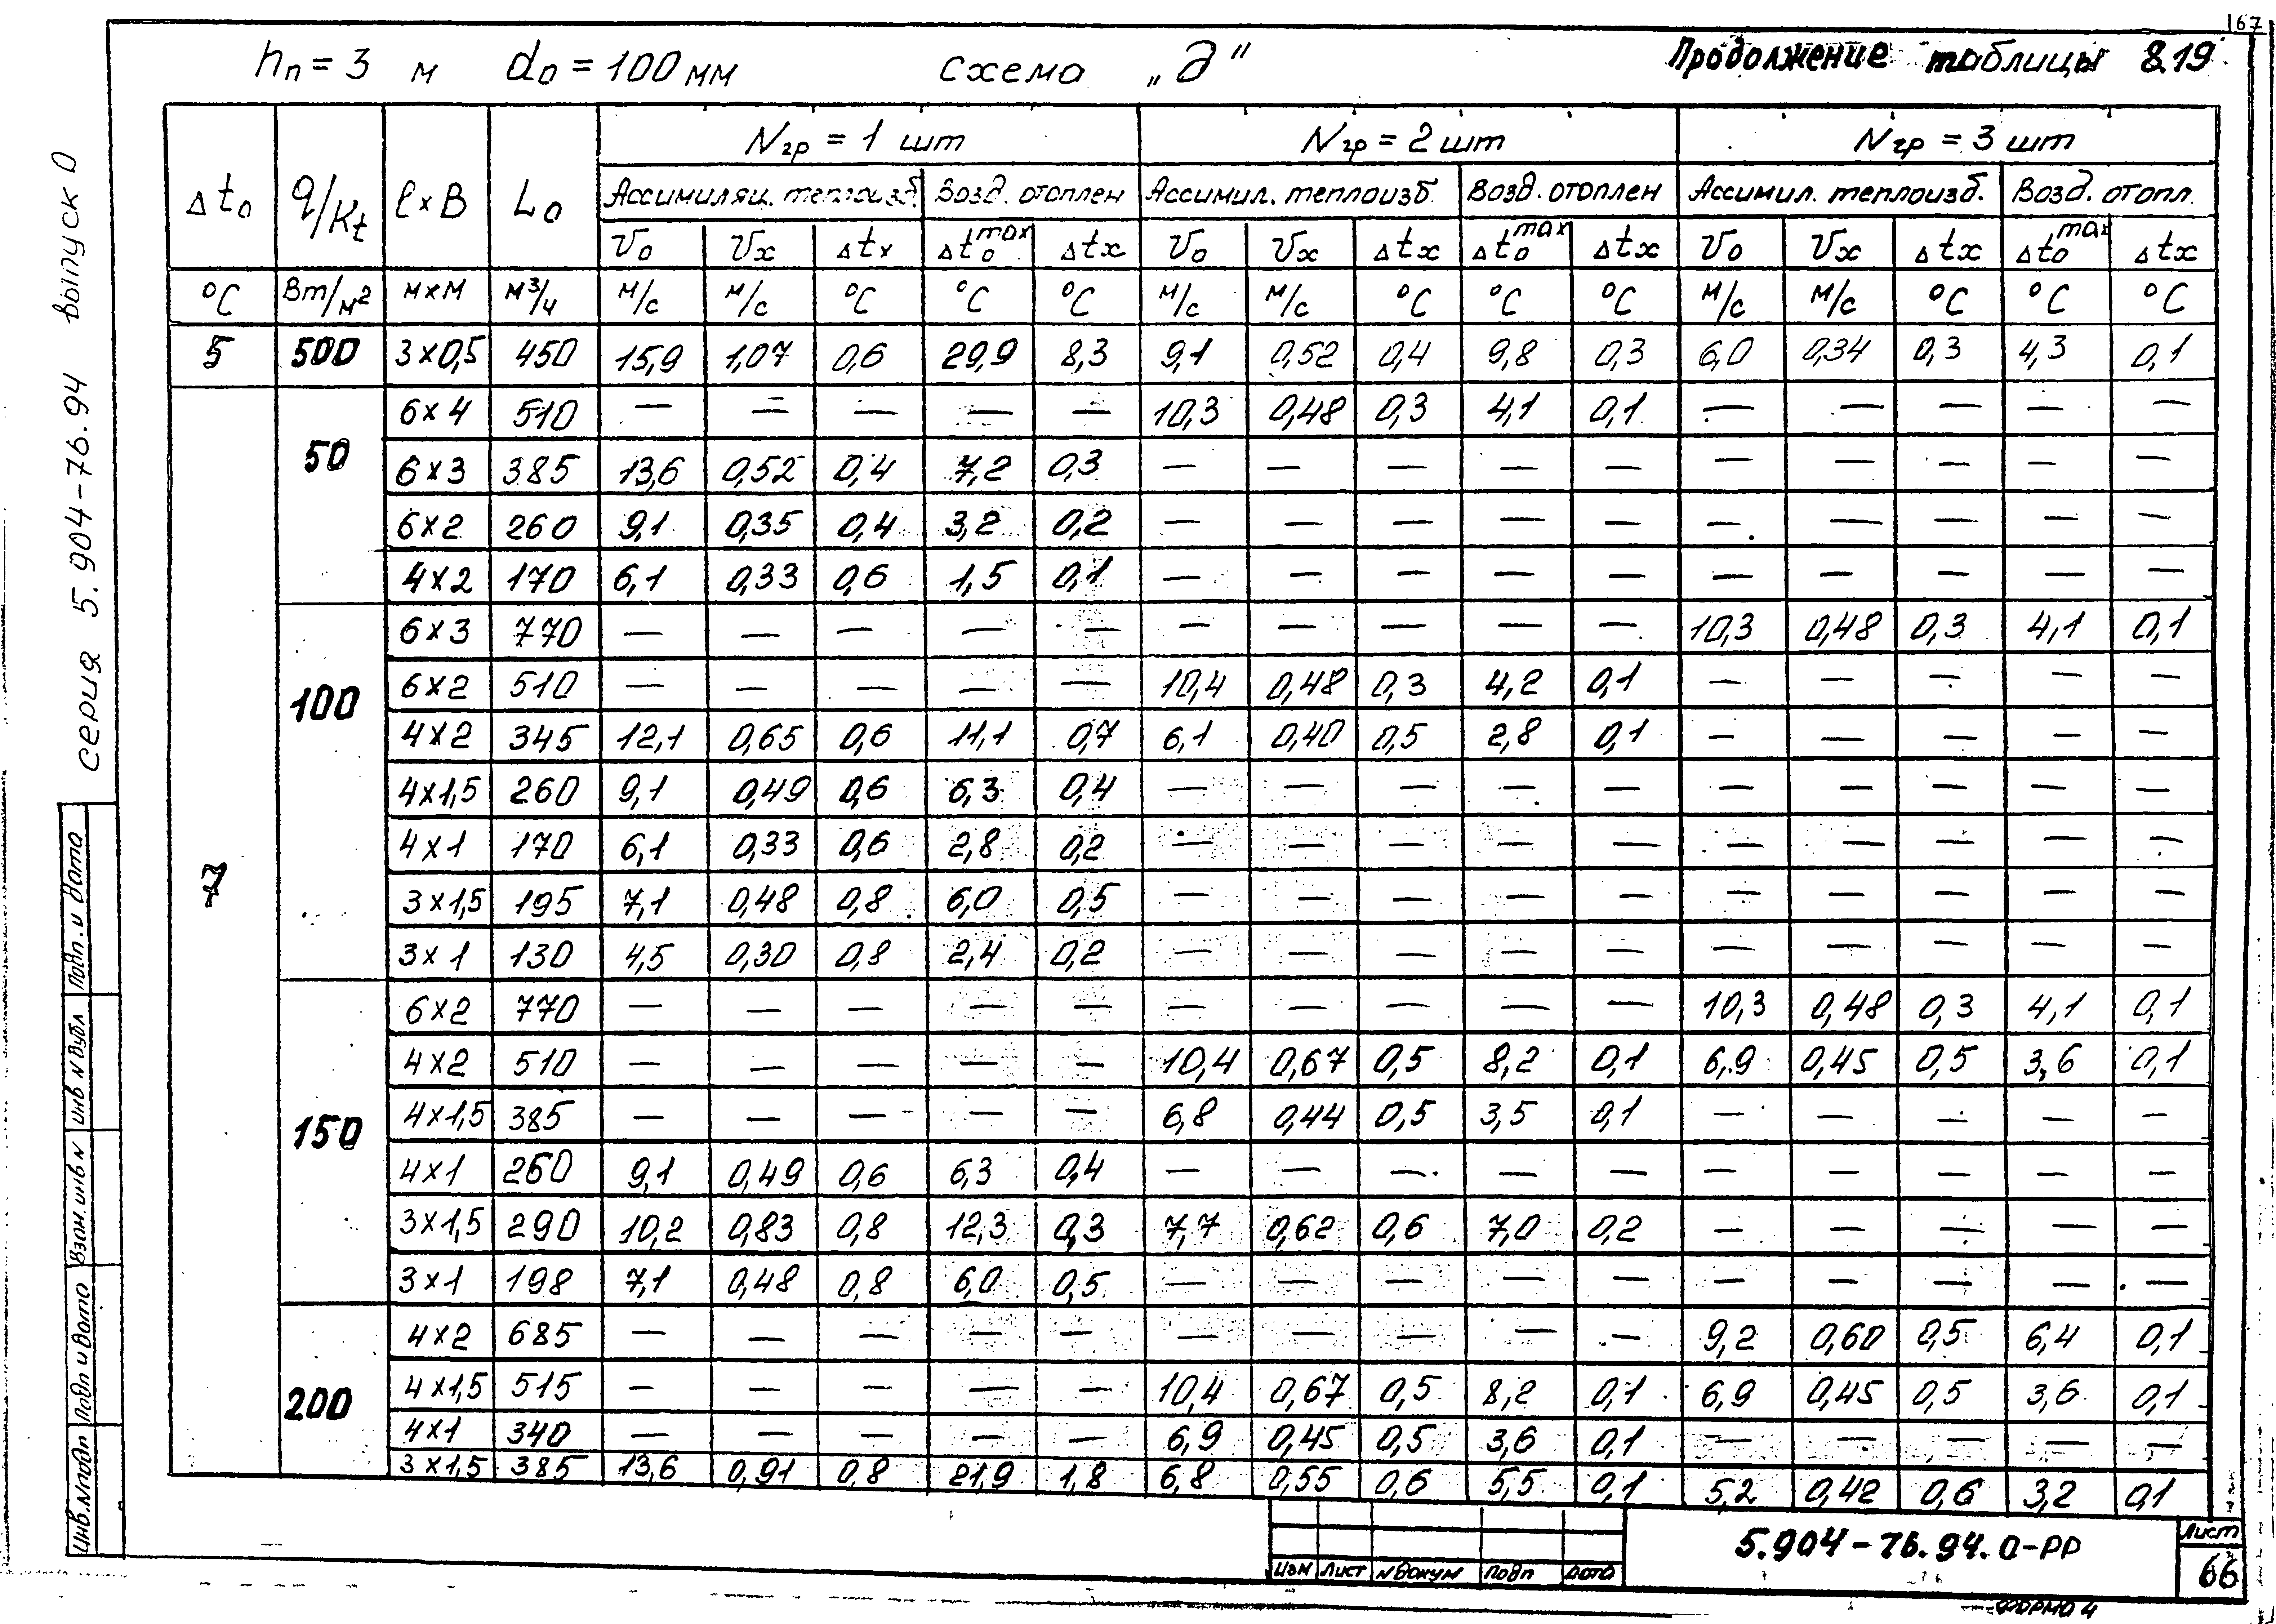 167
hп = 3 м d₀ = 100 мм схема „д" Продолжение таблицы 8.19
серия 5.904-76.94 выпуск 0
Δt₀ q/Kt ℓ×B L₀ Nгр = 1 шт Nгр = 2 шт Nгр = 3 шт
Ассимиляц. теплоизб. Возд. отоплен Ассимил. теплоизб. Возд. отоплен Ассимил. теплоизб. Возд. отопл.
V₀ Vx Δtx Δt₀max Δtx V₀ Vx Δtx Δt₀max Δtx V₀ Vx Δtx Δt₀max Δtx
°C Вт/м² м×м м³/ч м/с м/с °C °C °C м/с м/с °C °C °C м/с м/с °C °C °C
5 500 3×0,5 450 15,9 1,07 0,6 29,9 8,3 9,1 0,52 0,4 9,8 0,3 6,0 0,34 0,3 4,3 0,1
7 50 6×4 510 — — — — — 10,3 0,48 0,3 4,1 0,1 — — — — —
6×3 385 13,6 0,52 0,4 7,2 0,3 — — — — — — — — — —
6×2 260 9,1 0,35 0,4 3,2 0,2 — — — — — — — — — —
4×2 170 6,1 0,33 0,6 1,5 0,1 — — — — — — — — — —
100 6×3 770 — — — — — — — — — — 10,3 0,48 0,3 4,1 0,1
6×2 510 — — — — — 10,4 0,48 0,3 4,2 0,1 — — — — —
4×2 345 12,1 0,65 0,6 11,1 0,7 6,1 0,40 0,5 2,8 0,1 — — — — —
4×1,5 260 9,1 0,49 0,6 6,3 0,4 — — — — — — — — — —
4×1 170 6,1 0,33 0,6 2,8 0,2 — — — — — — — — — —
3×1,5 195 7,1 0,48 0,8 6,0 0,5 — — — — — — — — — —
3×1 130 4,5 0,30 0,8 2,4 0,2 — — — — — — — — — —
150 6×2 770 — — — — — — — — — — 10,3 0,48 0,3 4,1 0,1
4×2 510 — — — — — 10,4 0,67 0,5 8,2 0,1 6,9 0,45 0,5 3,6 0,1
4×1,5 385 — — — — — 6,8 0,44 0,5 3,5 0,1 — — — — —
4×1 260 9,1 0,49 0,6 6,3 0,4 — — — — — — — — — —
3×1,5 290 10,2 0,83 0,8 12,3 0,3 7,7 0,62 0,6 7,0 0,2 — — — — —
3×1 198 7,1 0,48 0,8 6,0 0,5 — — — — — — — — — —
200 4×2 685 — — — — — — — — — — 9,2 0,60 0,5 6,4 0,1
4×1,5 515 — — — — — 10,4 0,67 0,5 8,2 0,1 6,9 0,45 0,5 3,6 0,1
4×1 340 — — — — — 6,9 0,45 0,5 3,6 0,1 — — — — —
3×1,5 385 13,6 0,91 0,8 21,9 1,8 6,8 0,55 0,6 5,5 0,1 5,2 0,42 0,6 3,2 0,1
Подп. и дата
инв N дубл
Взам. инв N
Подп и дата
Инв. N подп
Изм Лист N докум Подп Дата
5.904-76.94.0-РР
Лист
66
Форма 4